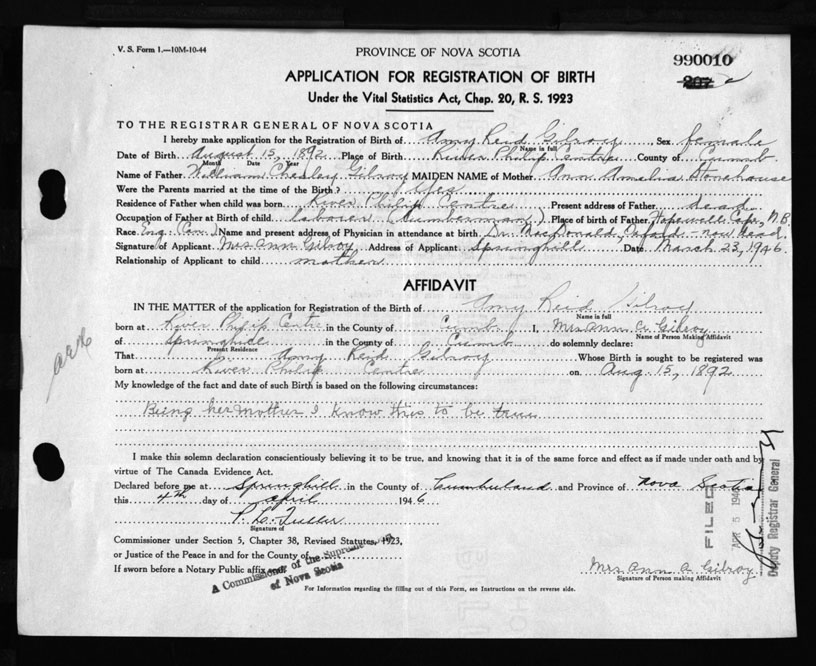 V. S. Form 1.—10M-10-44
PROVINCE OF NOVA SCOTIA
990010
207
APPLICATION FOR REGISTRATION OF BIRTH
Under the Vital Statistics Act, Chap. 20, R. S. 1923
TO THE REGISTRAR GENERAL OF NOVA SCOTIA
I hereby make application for the Registration of Birth of Amy Reid Gilroy, Sex female
Name in full
Date of Birth August 15, 1892 Place of Birth River Philip Centre County of Cumb
Month Date Year
Name of Father William Charley Gilroy MAIDEN NAME of Mother Ann Amelia Stonehouse
Were the Parents married at the time of the Birth? yes
Residence of Father when child was born River Philip Centre Present address of Father dead
Occupation of Father at Birth of child Laborer (Lumberman) Place of birth of Father Hopewell Cape, N.B.
Race Eng. Can. Name and present address of Physician in attendance at birth Dr. MacDonald, Oxford - now dead
Signature of Applicant Mrs Ann Gilroy Address of Applicant Springhill Date March 23, 1946
Relationship of Applicant to child mother
AFFIDAVIT
IN THE MATTER of the application for Registration of the Birth of Amy Reid Gilroy
Name in full
born at River Philip Centre in the County of Cumb I, Mrs Ann A. Gilroy
Name of Person Making Affidavit
of Springhill in the County of Cumb do solemnly declare:
Present Residence
That Amy Reid Gilroy Whose Birth is sought to be registered was
born at River Philip Centre on Aug 15, 1892
My knowledge of the fact and date of such Birth is based on the following circumstances:
Being her mother I know this to be true
I make this solemn declaration conscientiously believing it to be true, and knowing that it is of the same force and effect as if made under oath and by
virtue of The Canada Evidence Act.
Declared before me at Springhill in the County of Cumberland and Province of Nova Scotia
this 4th day of april 1946
P. L. Fuller
Signature of
Commissioner under Section 5, Chapter 38, Revised Statutes, 1923,
or Justice of the Peace in and for the County of
If sworn before a Notary Public affix
A Commissioner of the Supreme
of Nova Scotia
FILED
5 194
Deputy Registrar General
Mrs Ann A Gilroy
Signature of Person making Affidavit
For Information regarding the filling out of this Form, see Instructions on the reverse side.